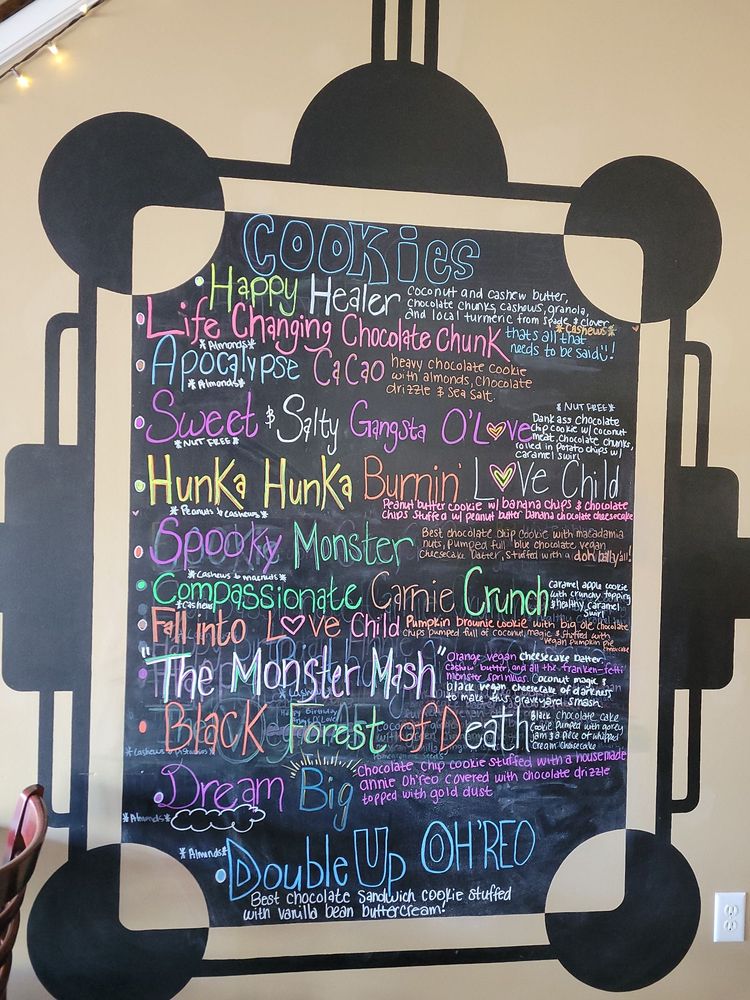 COOKies
Happy Healer
coconut and cashew butter,
chocolate chunks, cashews, granola,
and local turmeric from spade & clover
*Cashews*
Life Changing Chocolate Chunk
thats all that
needs to be said!
*Almonds*
Apocalypse CaCao
heavy chocolate cookie
with almonds, chocolate
drizzle & sea salt
*Almonds*
Sweet & Salty Gangsta O'Love
* NUT FREE *
Dank ass chocolate
chip cookie w/ coconut
meat, chocolate chunks,
rolled in potato chips w/
caramel swirl
*NUT FREE*
HunKa HunKa Burnin' LOVe Child
Peanut butter cookie w/ banana chips & chocolate
chips stuffed w/ peanut butter banana chocolate cheesecake
*Peanuts & Cashews*
Spooky Monster
Best chocolate chip cookie with macadamia
nuts, pumped full blue chocolate vegan
cheesecake batter, stuffed with a doh bally all!
*Cashews & macnuts*
Compassionate Carnie Crunch
caramel apple cookie
with crunchy topping
& healthy caramel
swirl
*Cashew
Fall into LOVe Child
Pumpkin brownie cookie with big ole chocolate
chips pumped full of coconut magic & stuffed with
vegan pumpkin pie
cheesecake
"The Monster Mash"
Orange vegan cheesecake batter
cashew butter, and all the franken-fetti
monster sprinkles. Coconut magic &
black vegan cheesecake of darkness
to make this graveyard smash
Black Forest of Death
Black chocolate cake
cookie pumped with gorey
jam & a piece of whipped
cream cheesecake
Dream Big
Chocolate chip cookie stuffed with a housemade
annie Oh'reo covered with chocolate drizzle
topped with gold dust
*Almonds*
*Almonds*
Double Up OH'REO
Best chocolate sandwich cookie stuffed
with vanilla bean buttercream!